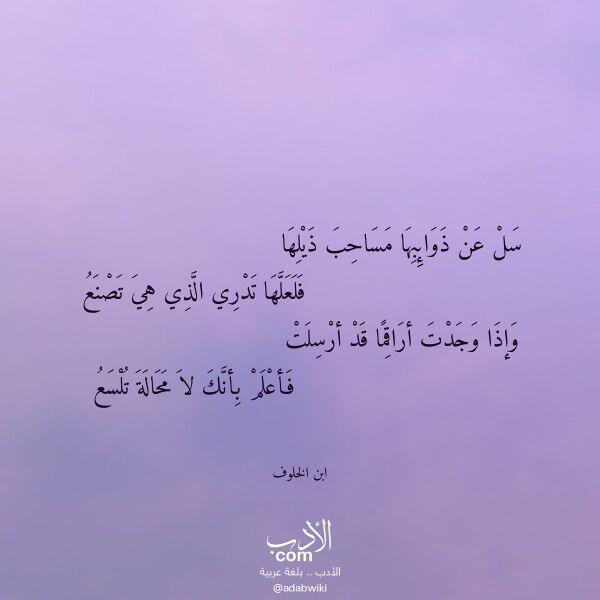 سَلْ عَنْ ذَوَايِبِهَا مَسَاحِبَ ذَيْلِهَا
فَلَعَلَّهَا تَدْرِي الَّذِي هِيَ تَصْنَعُ
وَإذَا وَجَدْتَ أرَاقِمًا قَدْ أرْسِلَتْ
فَأعْلَمْ بِأنَّكَ لاَ مَحَالَةَ تُلْسَعُ
ابن الخلوف
الأدب
.com
الأدب .. بلغة عربية
@adabwiki